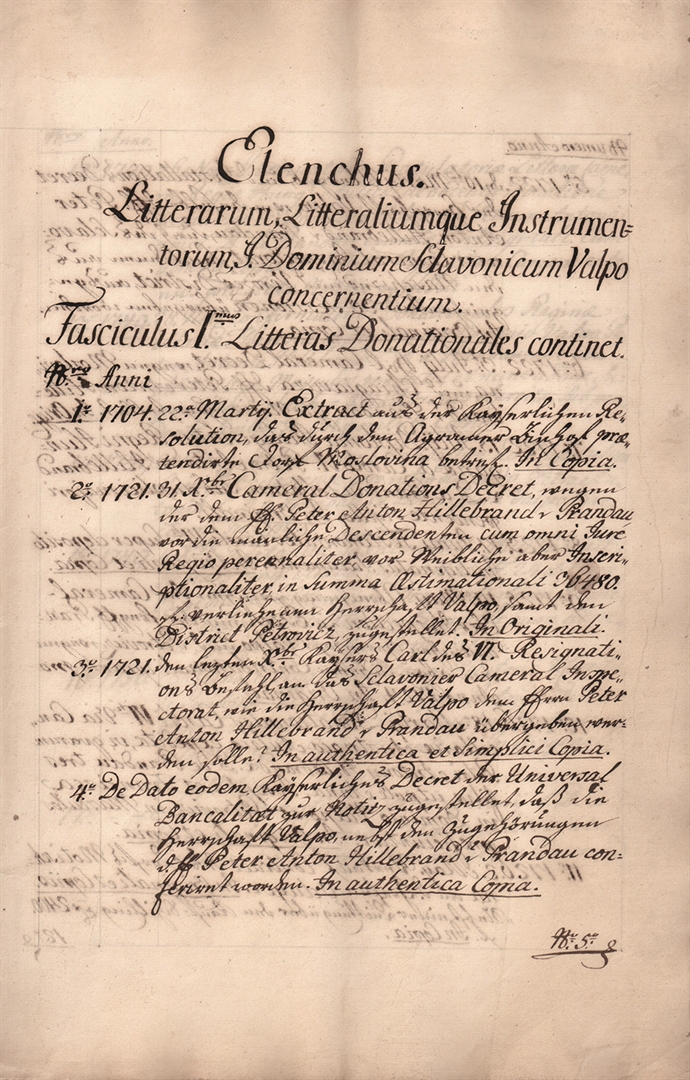 Elenchus.
Litterarum, Litteraliumque Instrumen=
torum, I. Dominium Sclavonicum Valpo
concernentium.
Fasciculus I.mus Litteras Donationales continet.
Nro Anni
1o 1704. 22a Martij. Extract aus der Kayserlichen Re-
solution, das durch den Agramer Bischof præ-
tendirte Moslovina betref. In Copia.
2o 1721. 31. Xbr. Cameral Donations Decret, wegen
der dem H. Peter Anton Hillebrand v Prandau
vor die mänliche Descendenten cum omni Jure
Regio perennaliter, vor Weibliche aber Inscri-
ptionaliter, in Summa Æstimationali 36480.
f. verliehenen Herrschaft Valpo, samt den
District Petrovicz, zugestellet. In Originali.
3o 1721. den lezten Xbr Kaysers Carl des VI. Resignati-
ons Befehl an das Sclavonier Cameral Inspe-
ctorat, wie die Herrschaft Valpo dem Herrn Peter
Anton Hillebrand v Prandau übergeben wer-
den solle? In authentica et Simplici Copia.
4o De Dato eodem Kayserliches Decret der Universal
Bancalitæt zur Notiz zugestellet, daß die
Herrschaft Valpo, nebst den Zugehörungen
Peter Anton Hillebrand v Prandau con-
ferirt worden. In authentica Copia.
Nro 5o